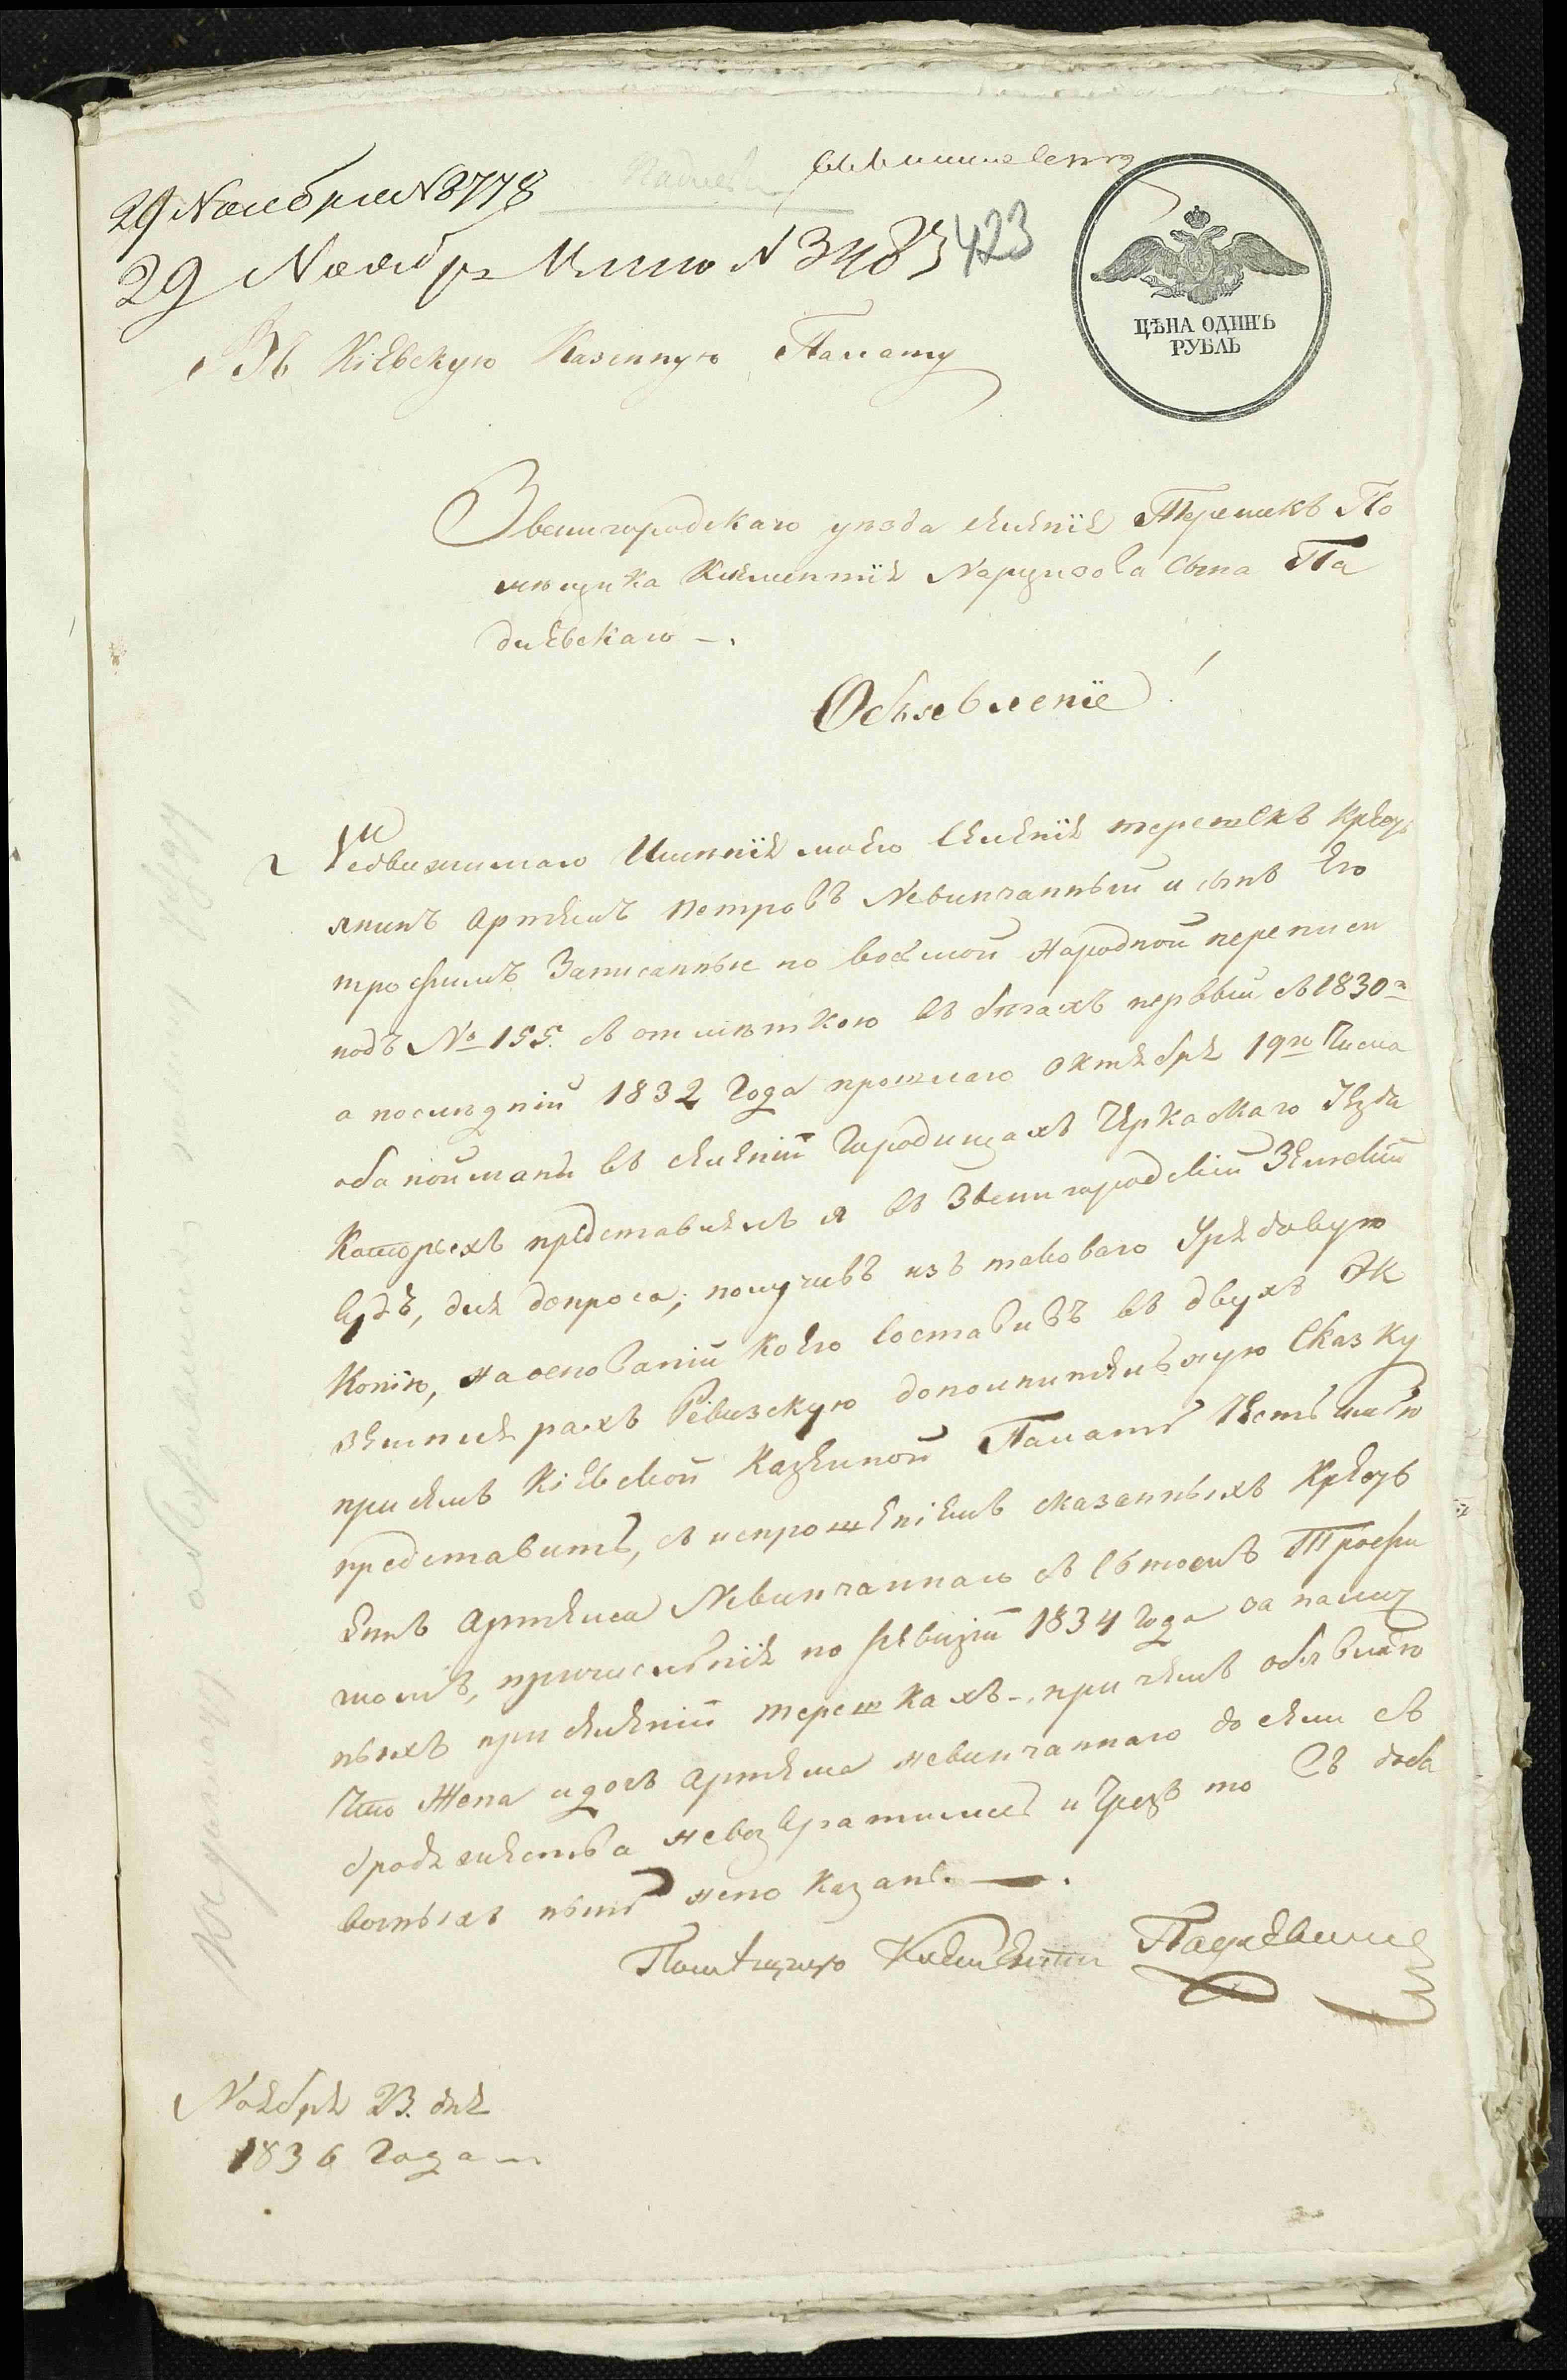 29 Ноября №8778
29 Ноябр № 3483
423
ЦѢНА ОДИНЪ
РУБЛЬ
Въ Кіевскую Казенную Палату
Звенигородскаго уезда селенія Терешокъ По
мѣщика Клементія Нарцизова Сына Па
длевскаго —.
Объявленіе
Недвижимаго Имѣнія моего селенія терешекъ Крестъ
янинъ Артемъ Петровъ Невинчанный и сынъ Его
трофимъ Записанные по восьмой Народной переписи
подъ № 155. съ отмѣткою въ бѣгахъ первый съ 1830го
а послѣдній 1832 Года прошлаго октября 19го Числа
оба пойманы въ селеніи Городищахъ Черкаскаго Уезда
Которыхъ представилъ я въ Звенигородскій Земскій
Судъ, для допроса; получивъ изъ таковаго Урядовую
Копію, на основаніи коего составивъ въ двухъ Эк
земплярахъ Ревизскую дополнительную Сказку
при семъ Кіевской Казенной Палатѣ Честь имѣю
представить, съ испрошеніемъ сказанныхъ Кресть
янъ Артема Невинчаннаго съ Сыномъ Трофи
момъ, причисленія по ревизіи 1834 Года за налич
ныхъ при селеніи терешкахъ —, при чемъ объявляю
Что Жена и дочь Артема невинчаннаго до сели съ
бродяжества невозвратились и Чрезъ то Съ доба
вочныхъ нынѣ непоказанъ. —.
Помѣщикъ Клементій Падлевский
Ноября 23. дня
1836 Года